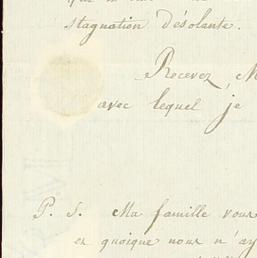 stagnation désolante.
Recevez, M
avec lequel je
P. S. Ma famille vous
et quoique nous n'ay